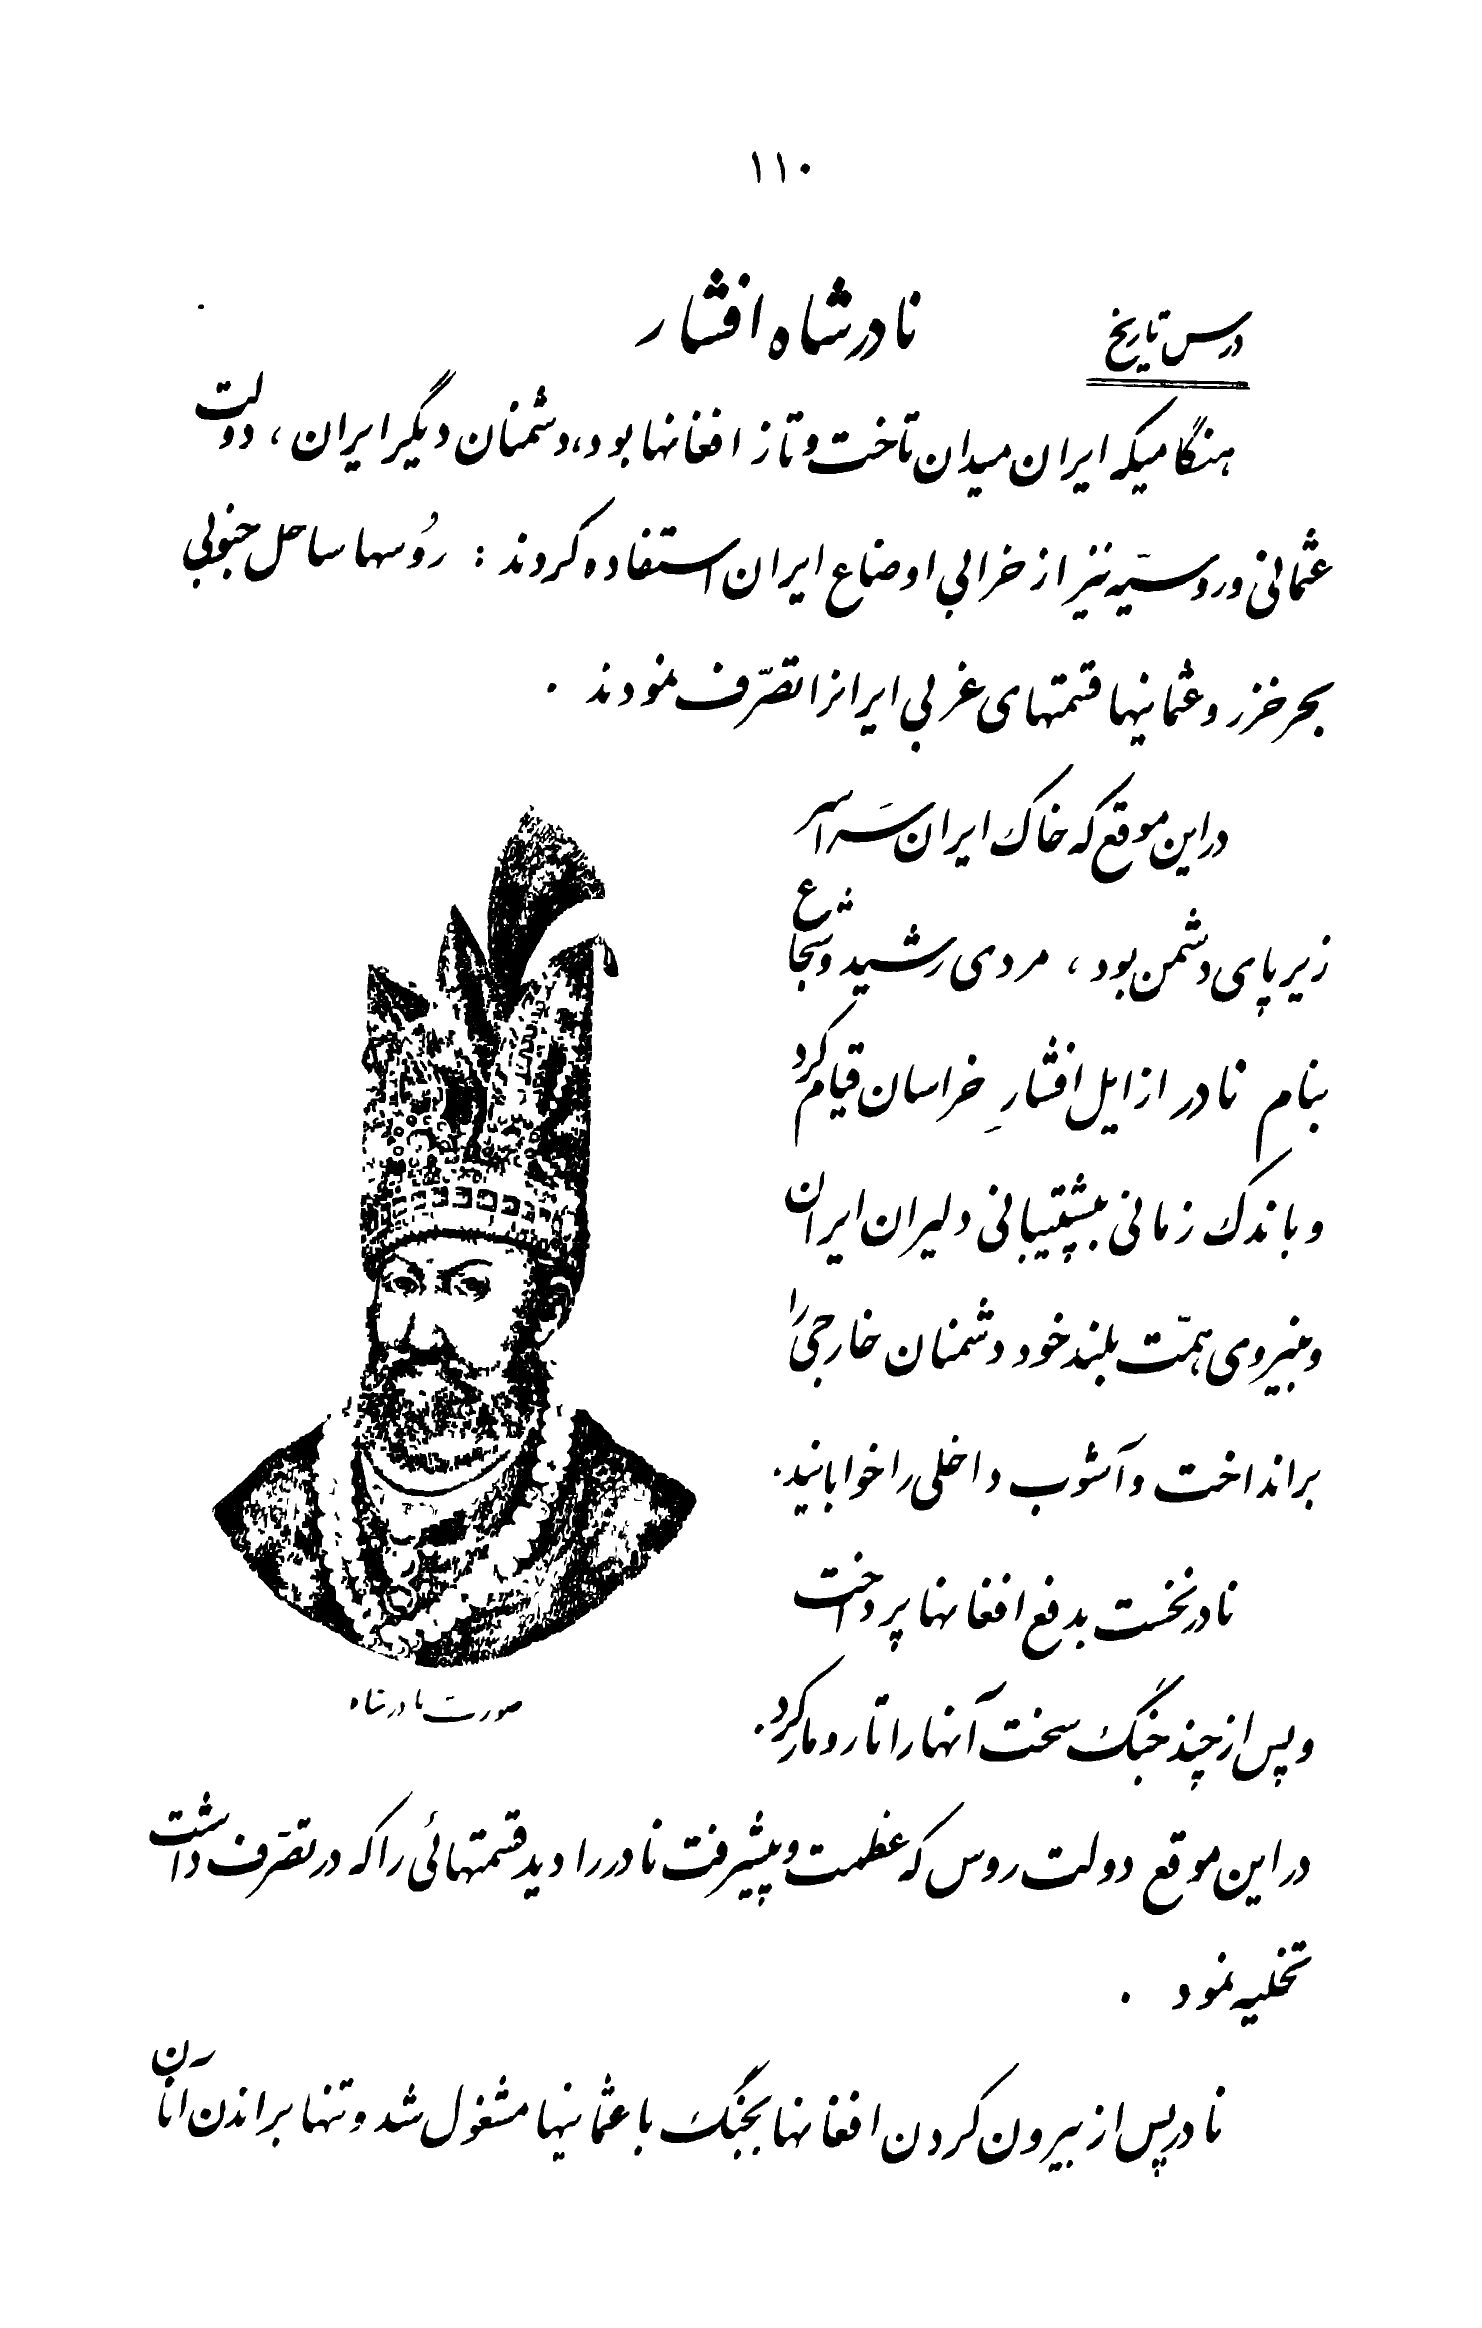 ۱۱۰
درس تاریخ
نادرشاه افشار
هنگامیکه ایران میدان تاخت و تاز افغانها بود، دشمنان دیگر ایران ، دولت
عثمانی و روسیّه نیز از خرابی اوضاع ایران استفاده کردند : رُوسها ساحل جنوبی
بحر خزر و عثمانیها قسمتهای غربی ایرانرا تصرّف نمودند .
در این موقع که خاک ایران سَراسر
زیر پای دشمن بود ، مردی رشید و شجاع
بنام نادر از ایل افشارِ خراسان قیام کرد
و باندک زمانی بپشتیبانی دلیران ایران
و بنیروی همّت بلند خود دشمنان خارجی را
برانداخت و آشوب داخلی را خوابانید.
نادر نخست بدفع افغانها پرداخت
و پس از چند جنگ سخت آنها را تار و مار کرد.
صورت نادرشاه
در این موقع دولت روس که عظمت و پیشرفت نادر را دید قسمتهائی را که در تصرّف داشت
تخلیه نمود .
نادر پس از بیرون کردن افغانها بجنگ با عثمانیها مشغول شد و تنها براندن آنان